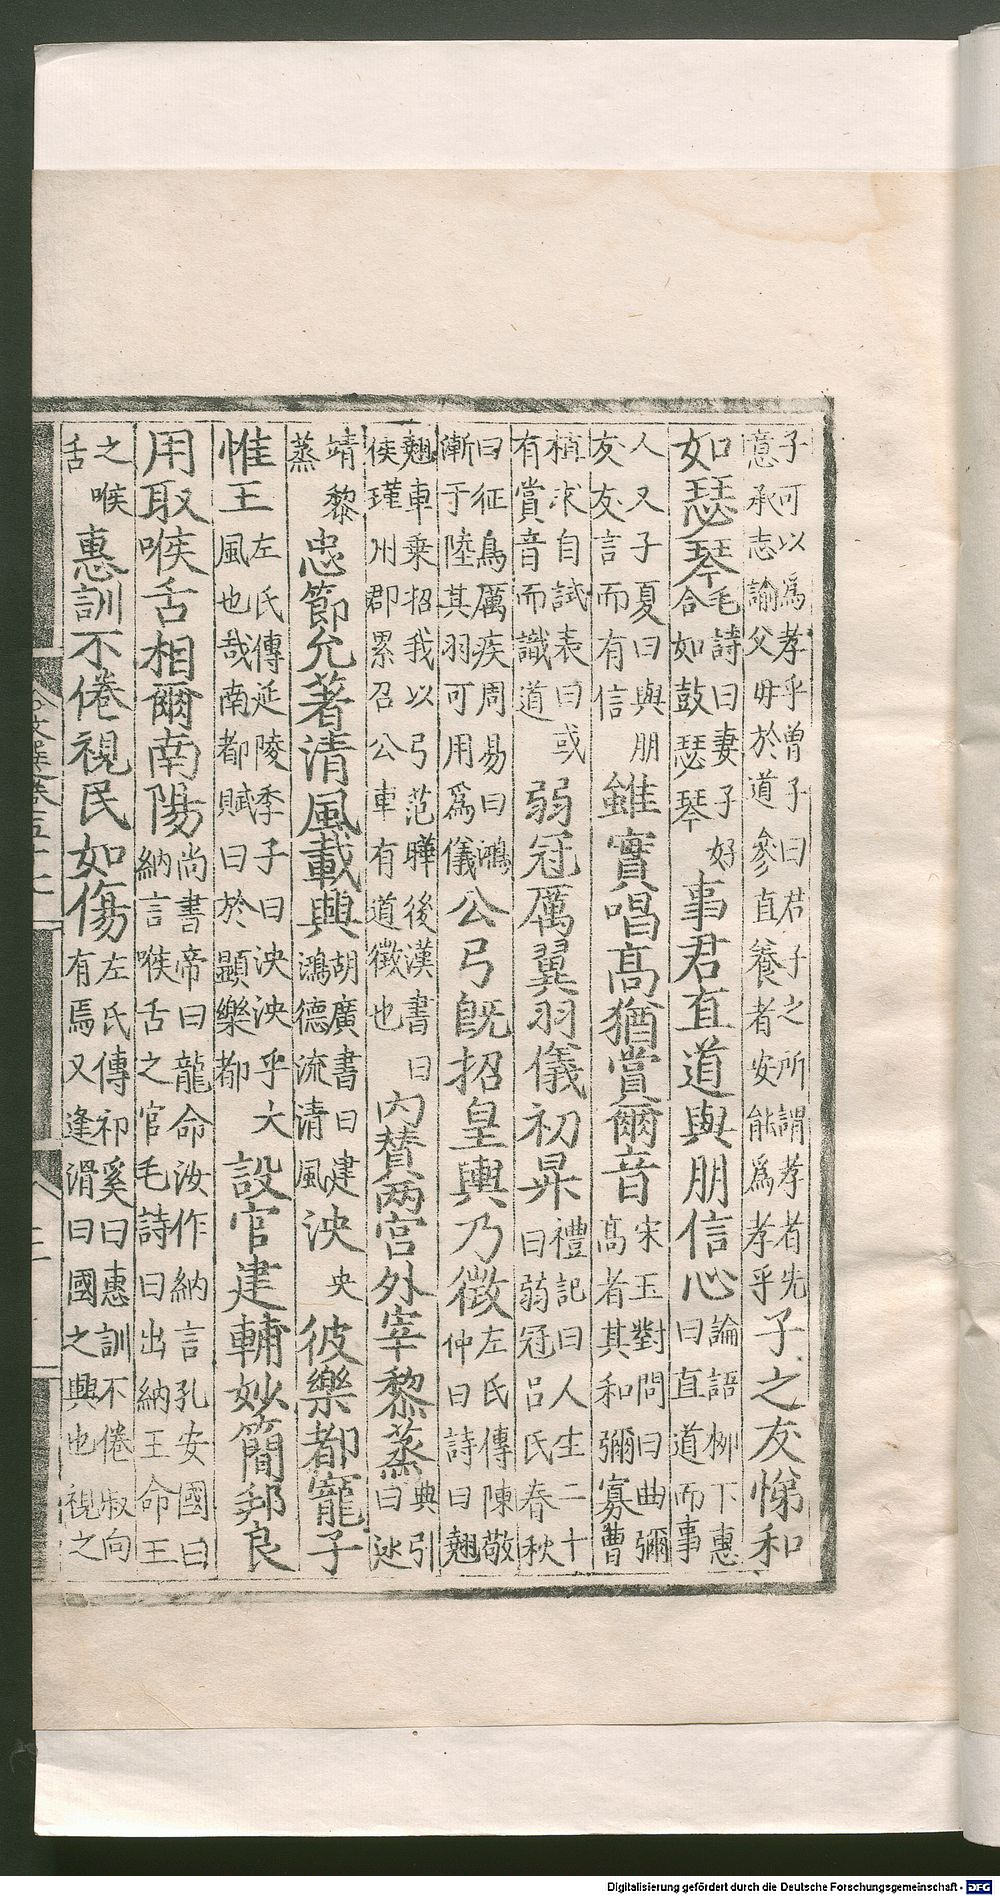 子可以爲孝乎曾子曰君子之所謂孝者先意承志諭父母於道參直養者安能爲孝乎子之友悌和
如瑟琴毛詩曰妻子好合如鼓瑟琴事君直道與朋信心論語柳下惠曰直道而事
人又子夏曰與朋友友言而有信雖實唱髙猶賞爾音宋玉對問曰曲彌髙者其和彌寡曹
植求自試表曰或有賞音而識道弱冠厲翼羽儀初昇禮記曰人生二十曰弱冠呂氏春秋
曰征鳥厲疾周易曰鴻漸于陸其羽可用爲儀公弓旣招皇輿乃徵左氏傳陳敬仲曰詩曰翹
翹車乗招我以弓范曄後漢書曰侯瑾州郡累召公車有道徵也内賛兩宫外宰黎蒸典引曰逑
靖黎蒸忠節允著清風載興胡廣書曰建鴻德流清風泱央彼樂都寵子
惟王左氏傳延陵季子曰泱泱乎大風也哉南都賦曰於顯樂都設官建輔妙簡邦良
用取喉舌相爾南陽尚書帝曰龍命汝作納言孔安國曰納言喉舌之官毛詩曰出納王命王
之喉舌惠訓不倦視民如傷左氏傳祁奚曰惠訓不倦叔向有焉又逢滑曰國之興也視之
文選卷五十
Digitalisierung gefördert durch die Deutsche Forschungsgemeinschaft - DFG